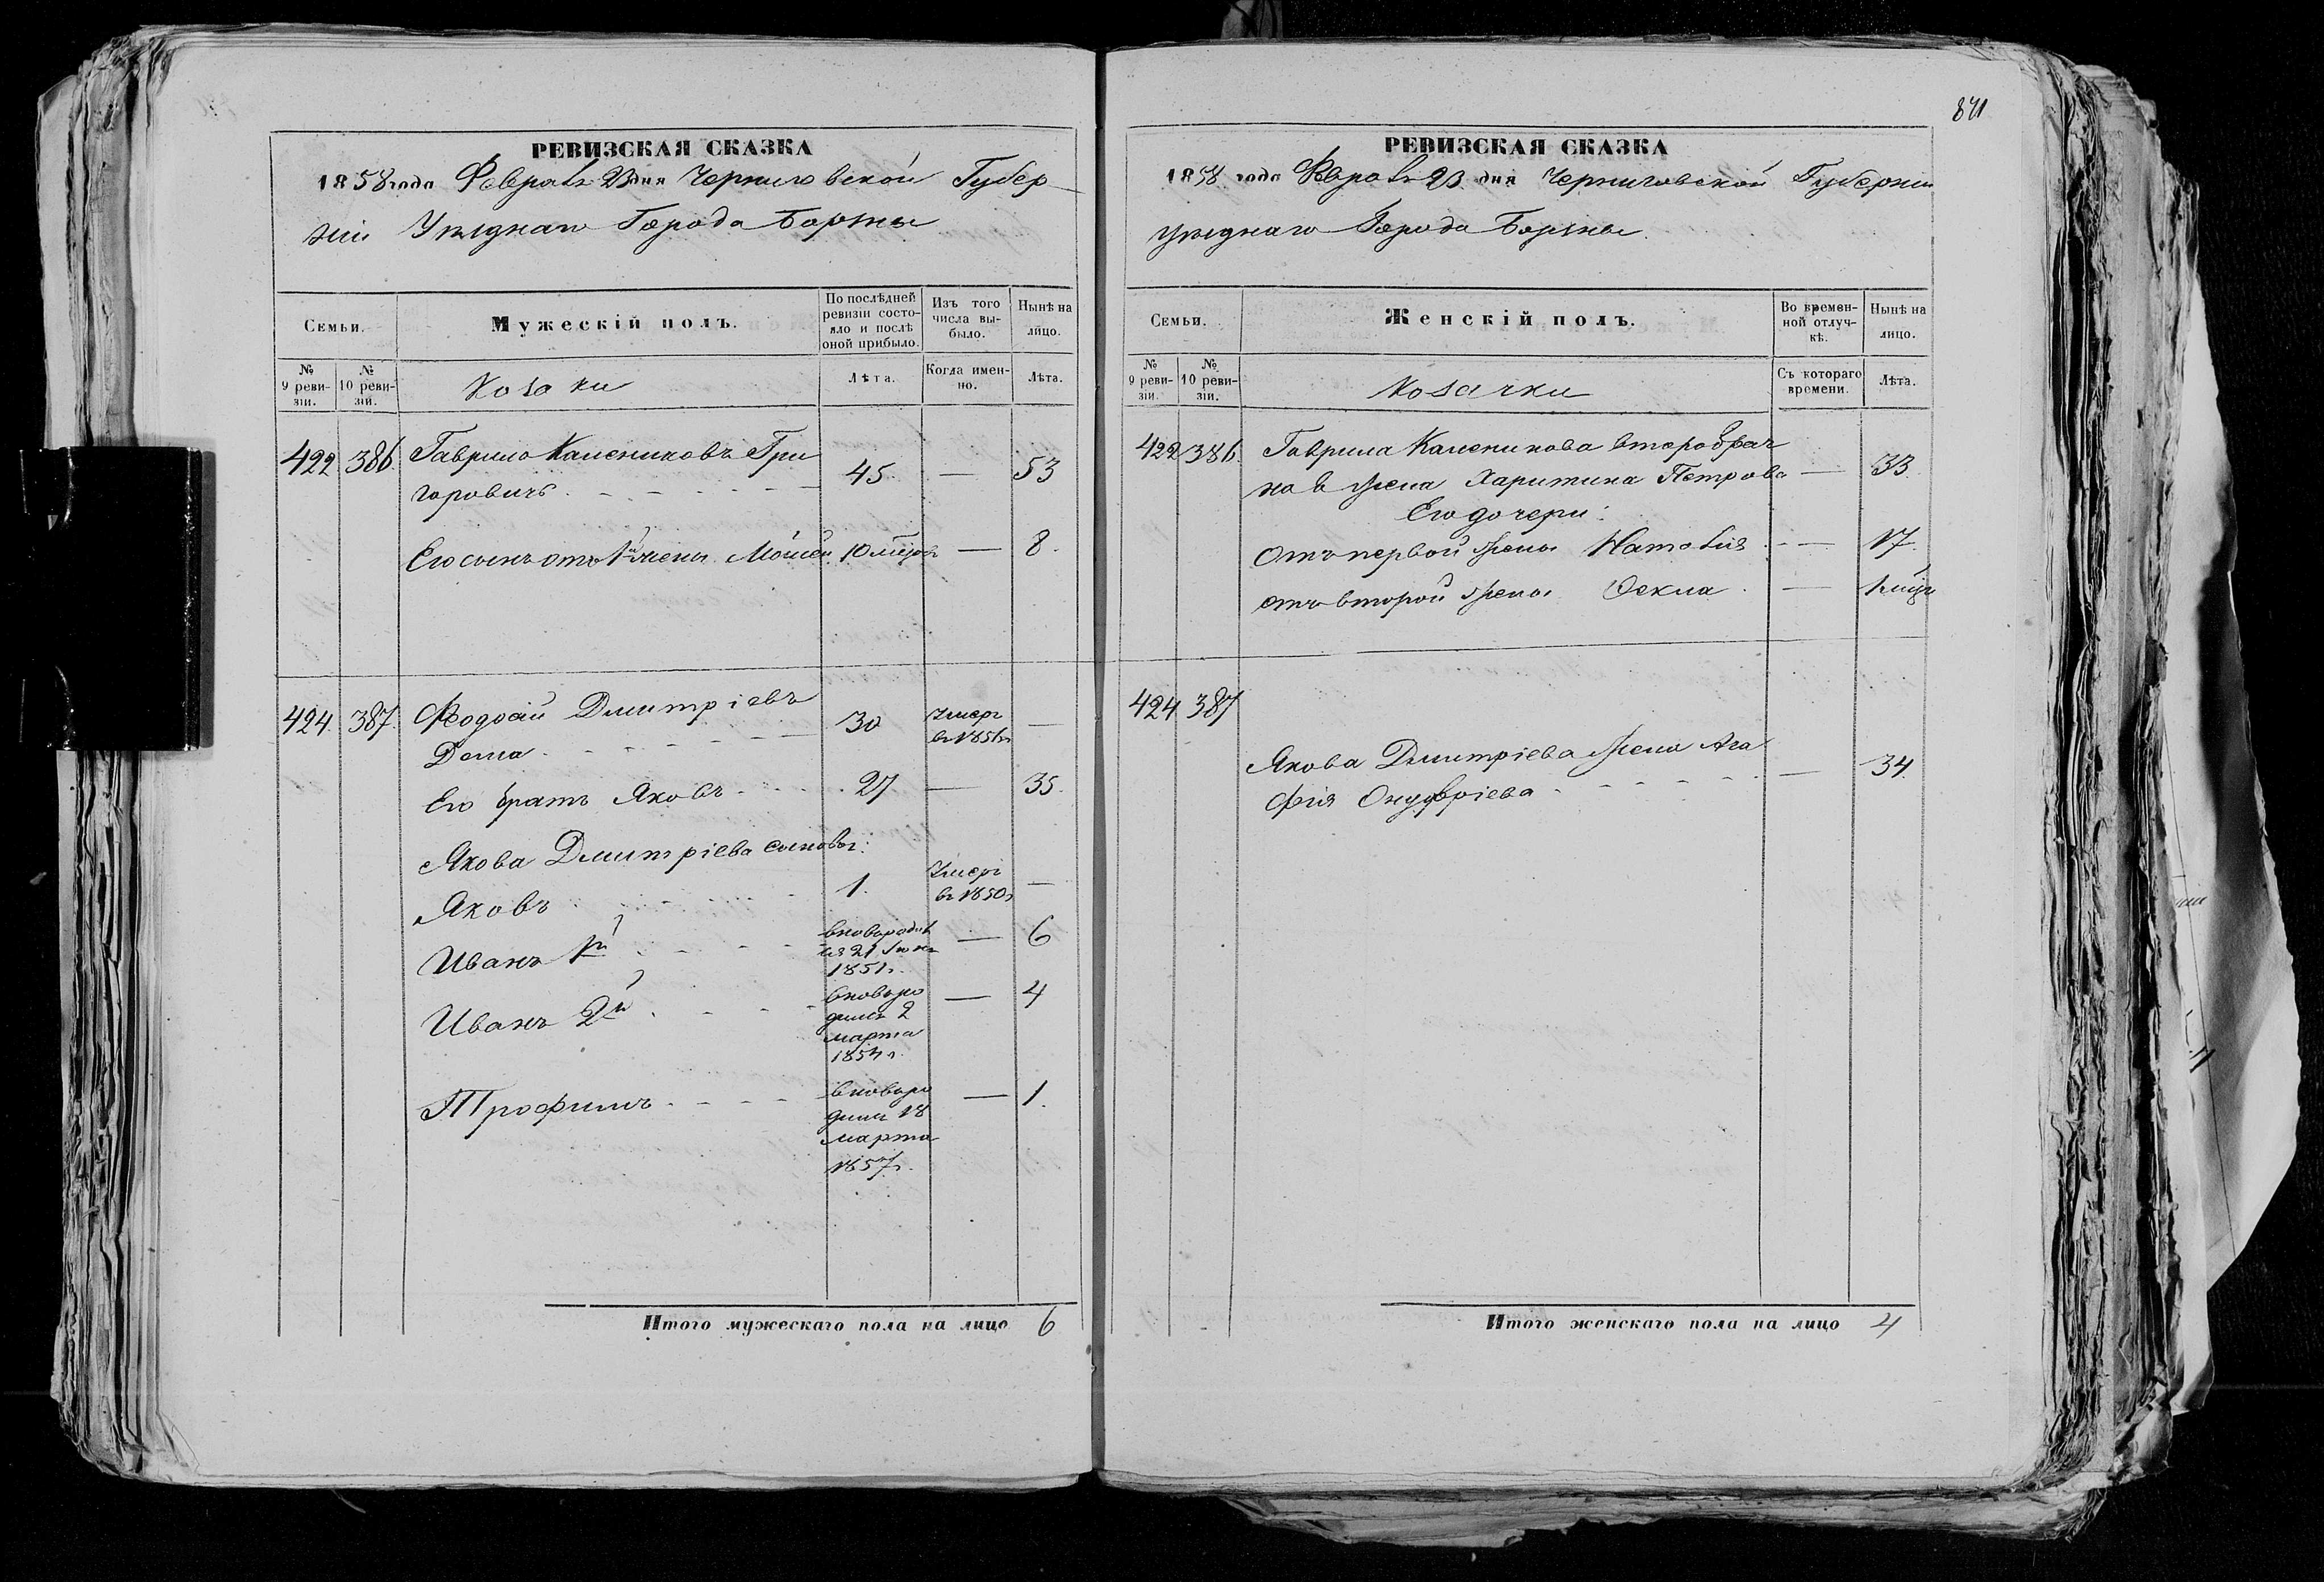 871
РЕВИЗСКАЯ СКАЗКА
1858 года Февраля 23 дня Черниговской Губер
ніи Уѣзднаго Города Борзны
Семьи.
Мужескій полъ.
По послѣдней ревизіи состояло и послѣ оной прибыло.
Изъ того числа выбыло.
Нынѣ на лицо.
№ 9 ревизіи.
№ 10 ревизіи.
Козаки
Лѣта.
Когда именно.
Лѣта.
422 386 Гаврило Калениковъ Гри
горовичъ 45 — 53
Его сынъ отъ 1й жены Мойсей 10 мѣся — 8
424 387 Федосій Дмитріевъ
30 Умеръ
Его братъ Яковъ 27 — 35
Якова Дмитріева сыновья:
Яковъ 1 Умеръ
въ 1850г —
Иванъ 1й
вновород
ся 21
1851г. — 6
Иванъ 2й
вноворо
дил 2
марта
1854г. — 4
Трофимъ
вноворо
дил 18
марта
1857г. — 1
Итого мужескаго пола на лицо 6
РЕВИЗСКАЯ СКАЗКА
1858 года Февраля 23 дня Черниговской Губерніи
уѣзднаго Города Борзны
Семьи.
Женскій полъ.
Во временной отлучкѣ.
Нынѣ на лицо.
№ 9 ревизіи.
№ 10 ревизіи.
Козачки
Съ котораго времени.
Лѣта.
422 386 Гаврила Каленикова второбрач
ная жена Харитина Петрова — 33
Его дочери:
Отъ первой жены Наталія — 17
отъ второй жены Фекла — 1 мѣся
424 387
Якова Дмитріева жена Ага
фія Онуфріева — 34
Итого женскаго пола на лицо 4